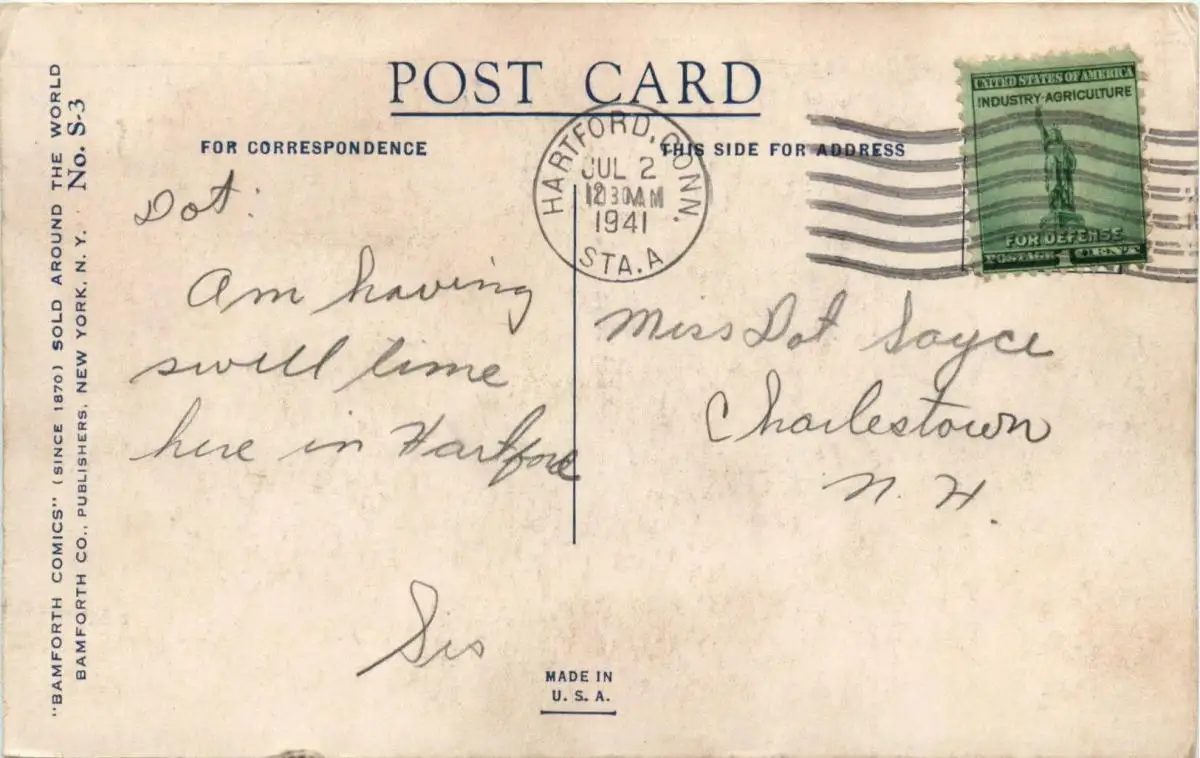 POST CARD
FOR CORRESPONDENCE
THIS SIDE FOR ADDRESS
"BAMFORTH COMICS" (SINCE 1870) SOLD AROUND THE WORLD
BAMFORTH CO., PUBLISHERS, NEW YORK, N. Y. No. S-3
HARTFORD, CONN.
JUL 2
12 30 AM
1941
STA. A
UNITED STATES OF AMERICA
INDUSTRY·AGRICULTURE
FOR DEFENSE
POSTAGE 1 CENT
Dot:
Am having
swell time
here in Hartford
Sis
Miss Dot Sayce
Charlestown
N. H.
MADE IN
U. S. A.